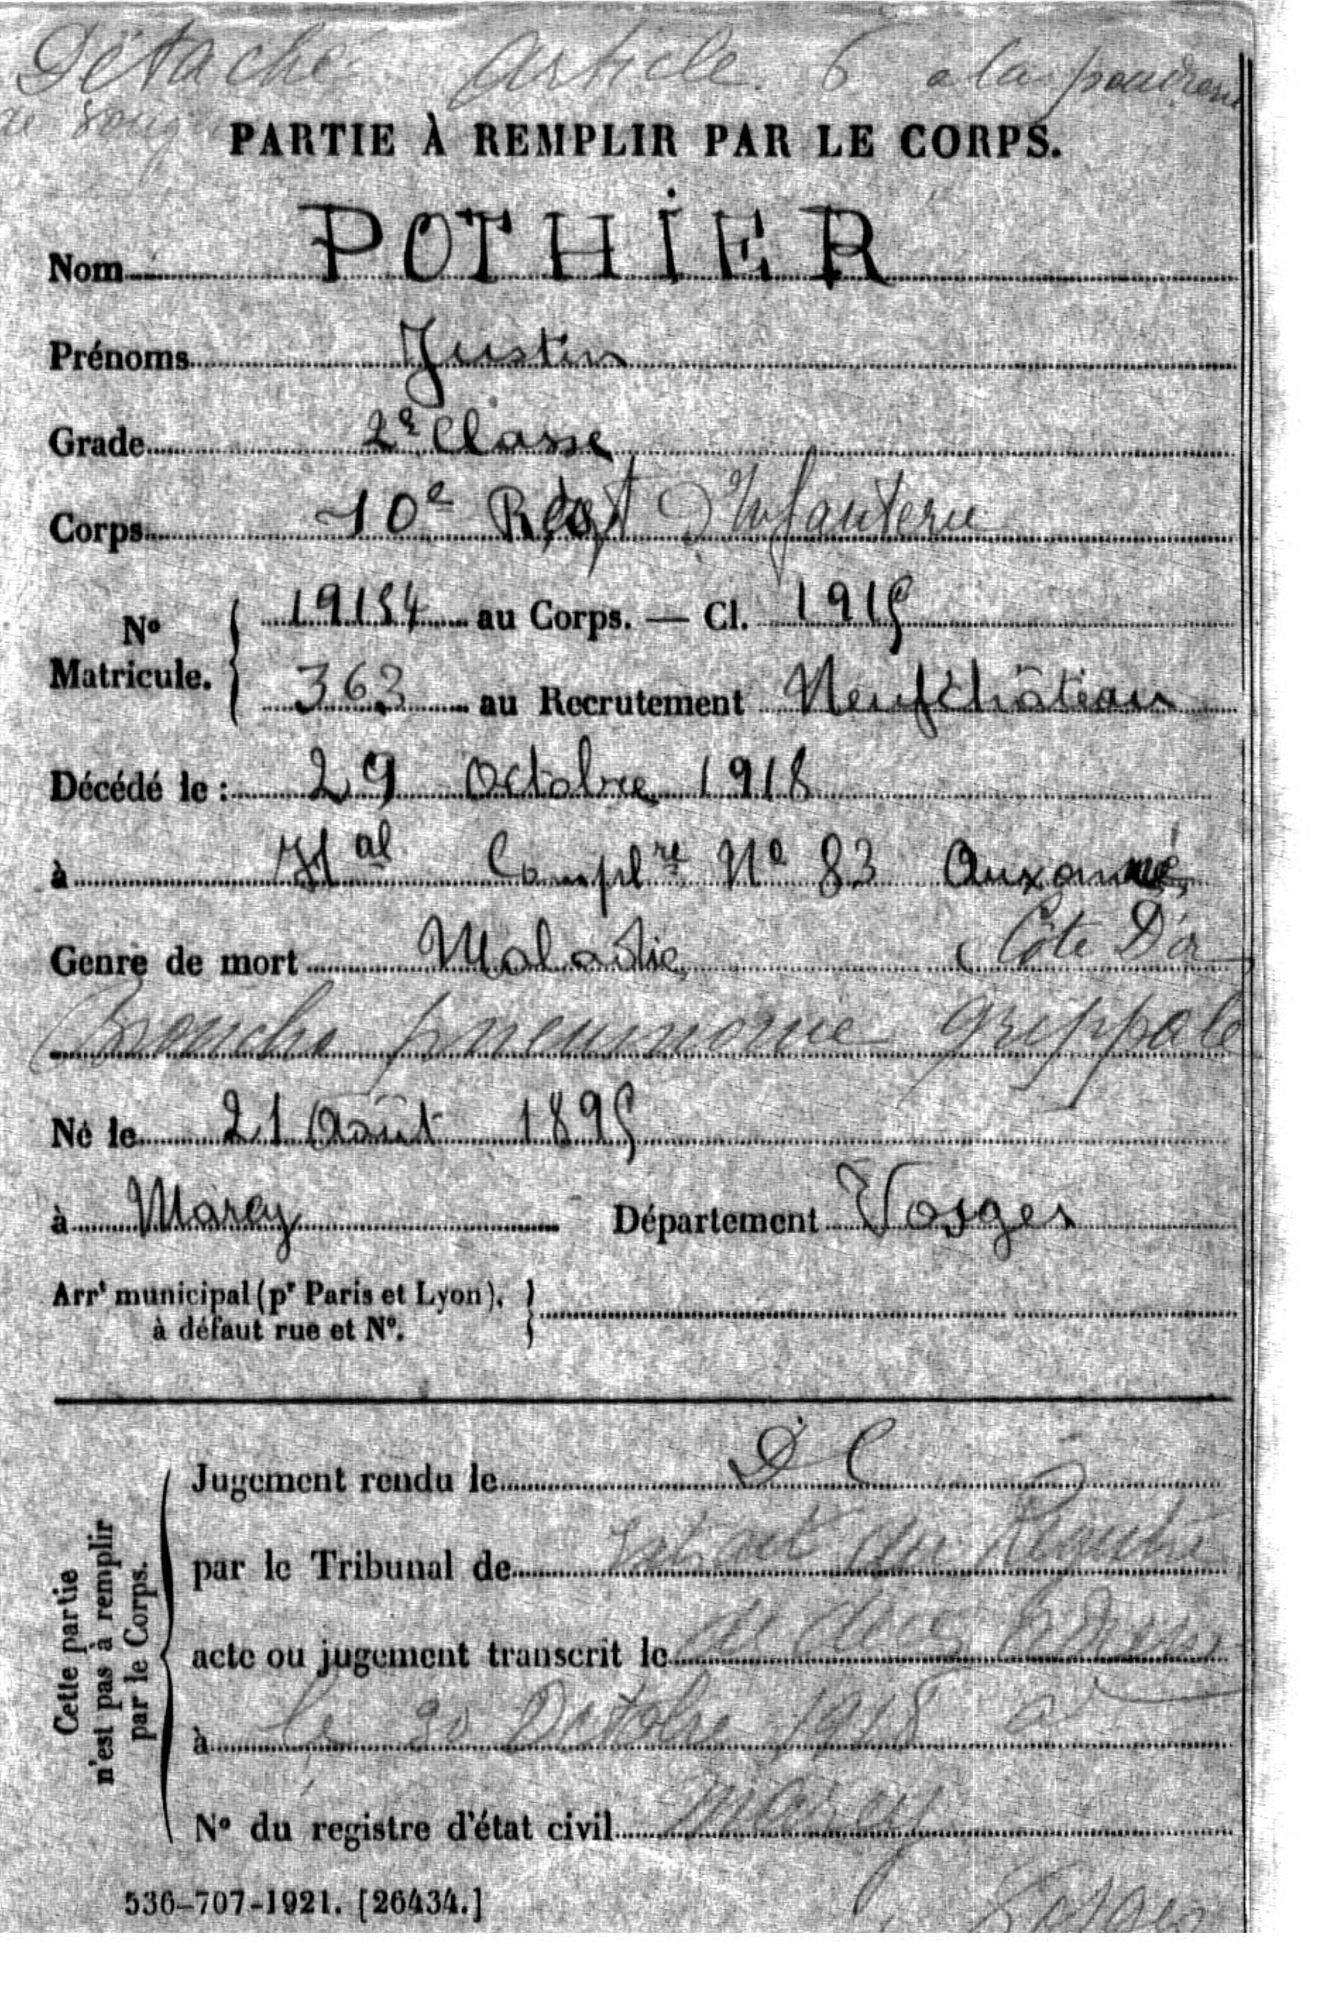 Détaché Article 6 a la poudrerie
de Vong
PARTIE À REMPLIR PAR LE CORPS.
Nom POTHIER
Prénoms Justin
Grade 2e Classe
Corps 10e Régt d'Infanterie
No Matricule. 19154 au Corps. — Cl. 1915
363 au Recrutement Neufchâteau
Décédé le : 29 Octobre 1918
à Hal Complre No 83 Auxonne
Genre de mort Maladie (Côte D'or
Broncho pneumonie grippale
Né le 21 Août 1895
à Marey Département Vosges
Arrt municipal (pr Paris et Lyon), à défaut rue et No.
Cette partie n'est pas à remplir par le Corps.
Jugement rendu le D C
par le Tribunal de Extrait du Registre
acte ou jugement transcrit le de décès adressé
à le 30 Octobre 1918 à
No du registre d'état civil Marey
536-707-1921. [26434.] Vosges